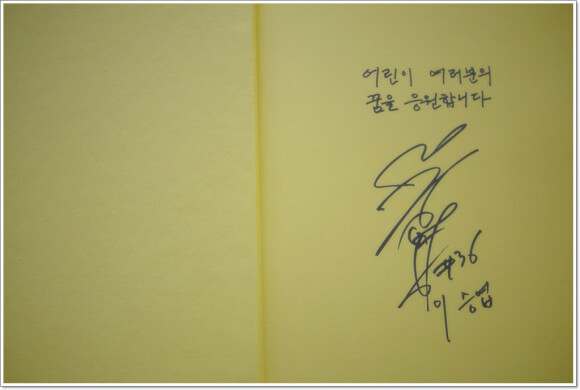 어린이 여러분의
꿈을 응원합니다
#36
이승엽